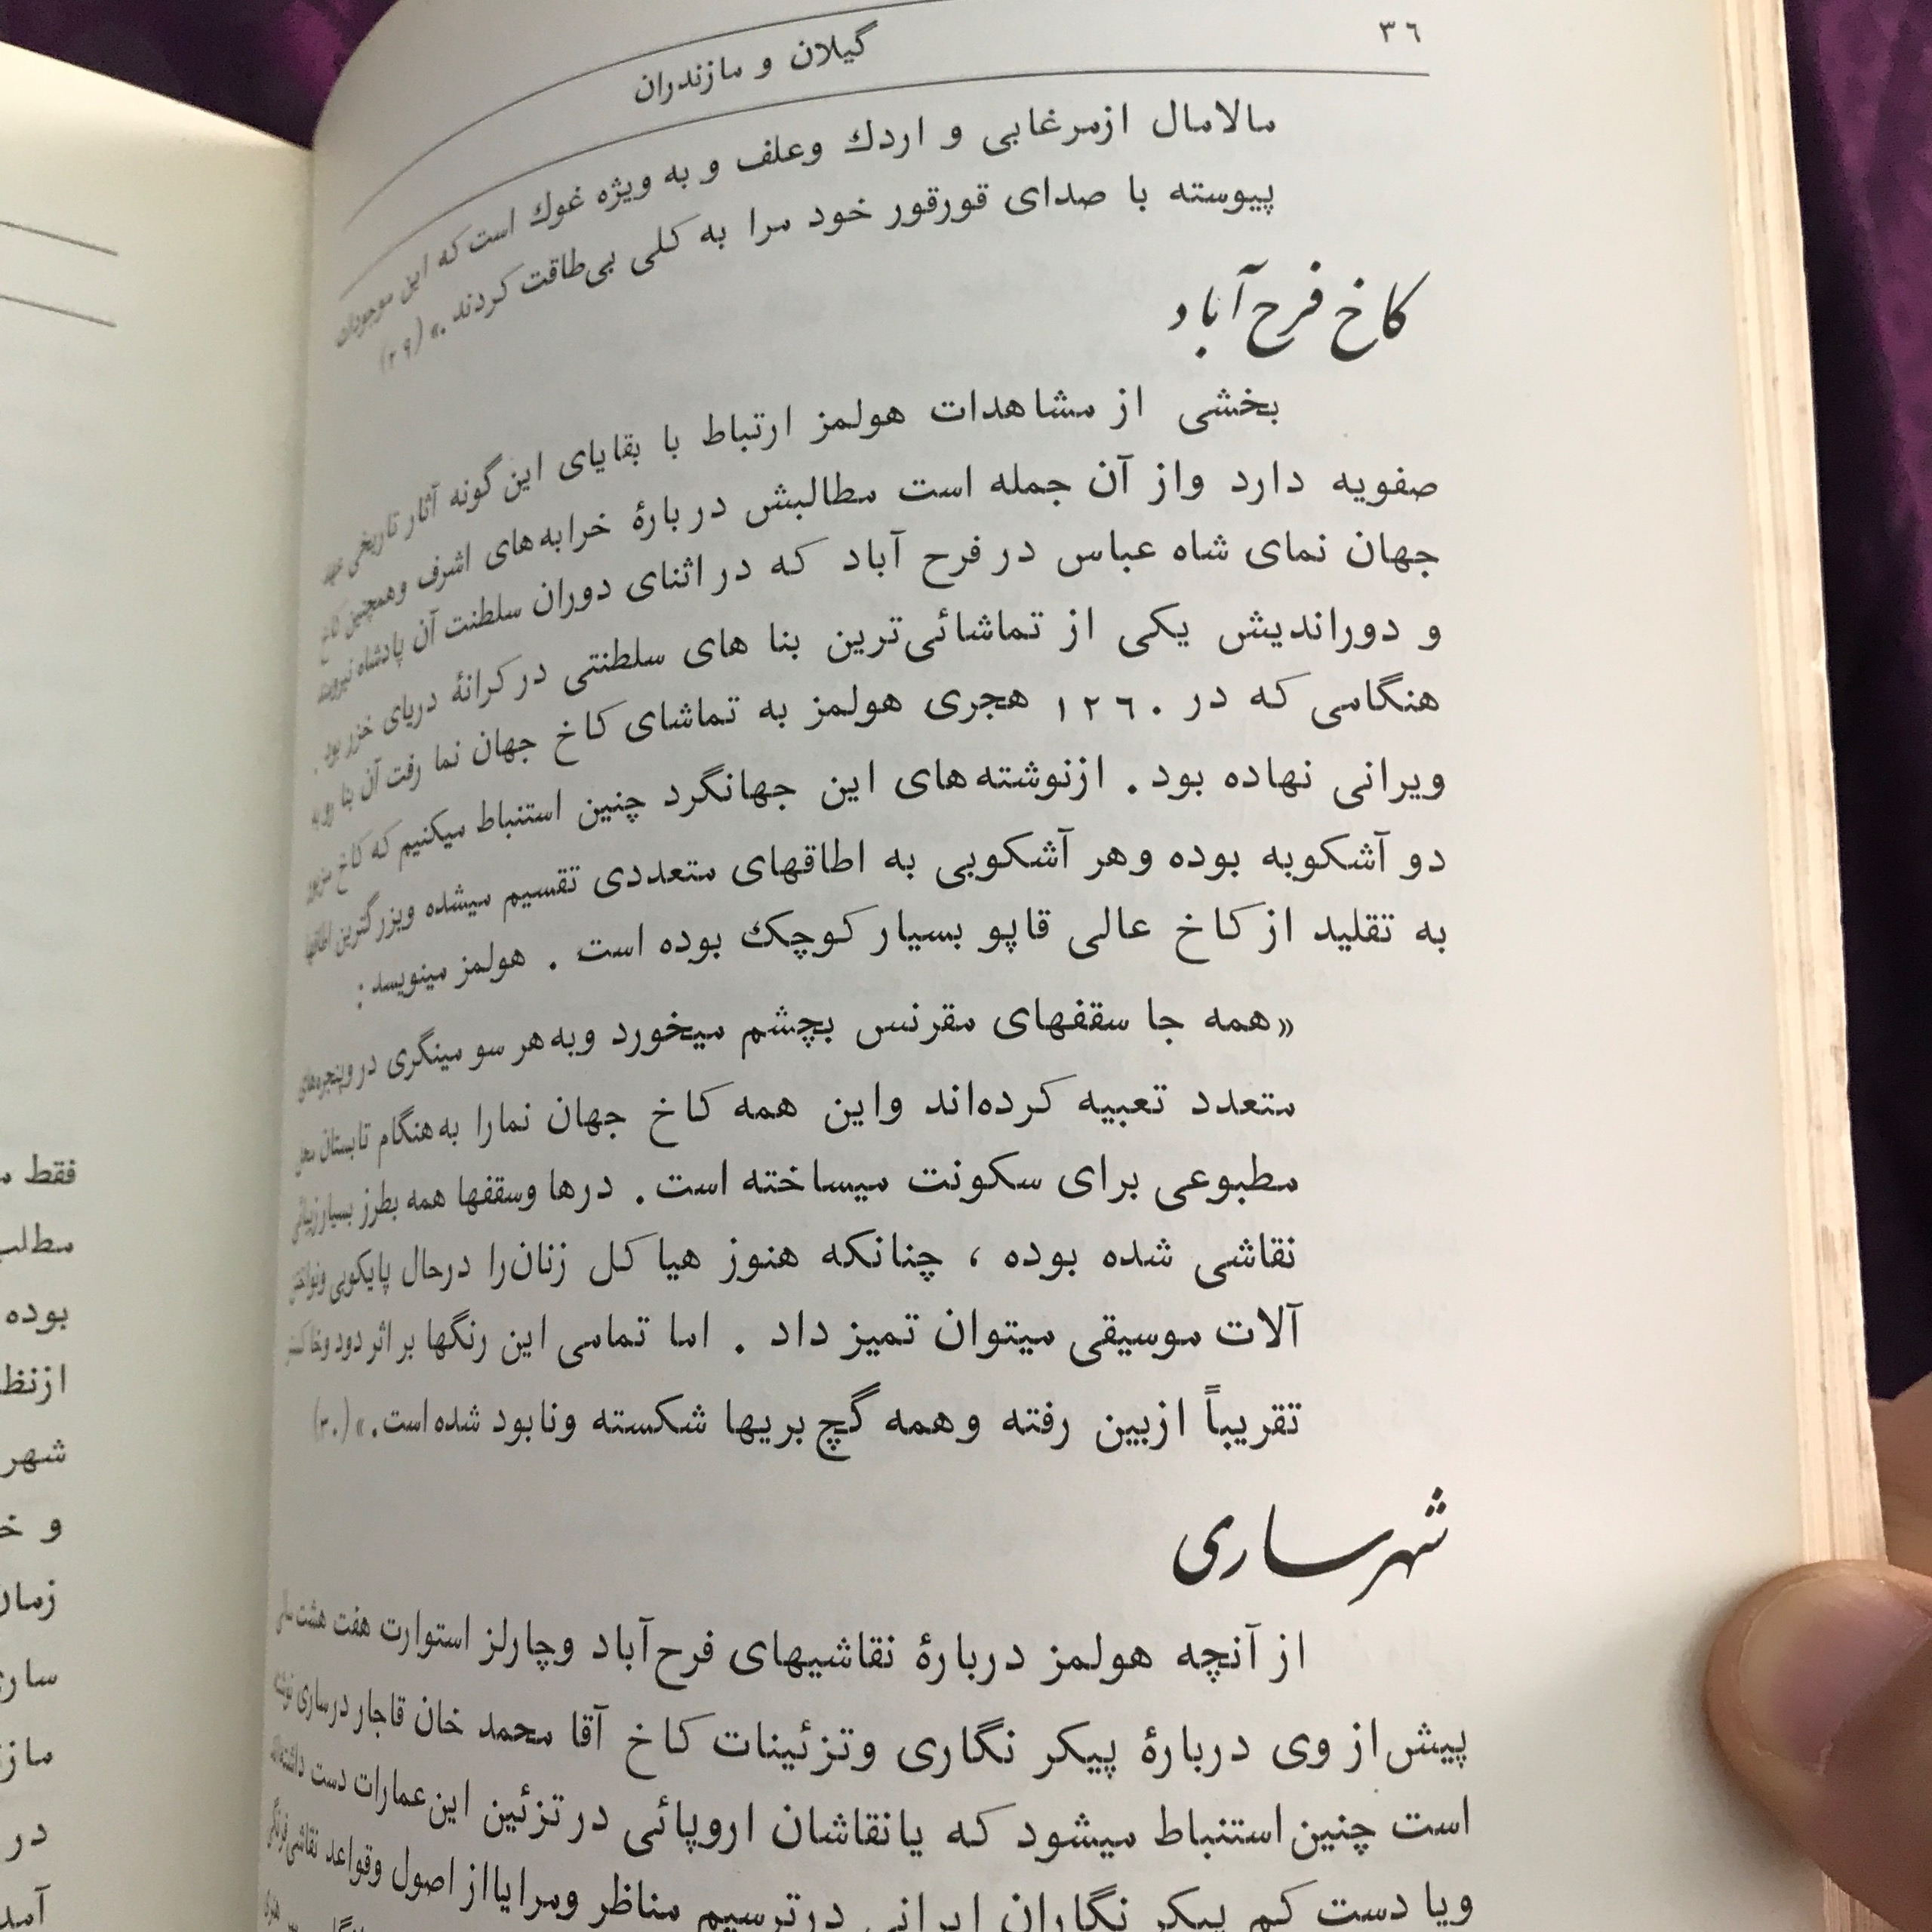 ٣٦
گیلان و مازندران
مالامال ازمرغابی و اردك وعلف و به ویژه غوك است که این موجودات
پیوسته با صدای قورقور خود مرا به کلی بی‌طاقت کردند.» (٢٩)
کاخ فرح‌آباد
بخشی از مشاهدات هولمز ارتباط با بقایای این گونه آثار تاریخی عهد
صفویه دارد واز آن جمله است مطالبش دربارهٔ خرابه‌های اشرف وهمچنین کاخ
جهان نمای شاه عباس در فرح آباد که در اثنای دوران سلطنت آن پادشاه نیرومند
و دوراندیش یکی از تماشائی‌ترین بنا های سلطنتی در کرانهٔ دریای خزر بود.
هنگامی که در ١٢٦٠ هجری هولمز به تماشای کاخ جهان نما رفت آن بنا رو به
ویرانی نهاده بود. ازنوشته‌های این جهانگرد چنین استنباط میکنیم که کاخ مزبور
دو آشکوبه بوده وهر آشکوبی به اطاقهای متعددی تقسیم میشده وبزرگترین اطاقها
به تقلید از کاخ عالی قاپو بسیار کوچك بوده است. هولمز مینویسد:
«همه جا سقفهای مقرنس بچشم میخورد وبه هر سو مینگری در وپنجره‌های
متعدد تعبیه کرده‌اند واین همه کاخ جهان نمارا به هنگام تابستان محل
مطبوعی برای سکونت میساخته است. درها وسقفها همه بطرز بسیار زیبائی
نقاشی شده بوده ، چنانکه هنوز هیاکل زنان‌را درحال پایکوبی ونواختن
آلات موسیقی میتوان تمیز داد . اما تمامی این رنگها بر اثر دود وخاکستر
تقریباً ازبین رفته وهمه گچ بریها شکسته ونابود شده است.» (٣٠)
شهر ساری
از آنچه هولمز دربارهٔ نقاشیهای فرح‌آباد وچارلز استوارت هفت هشت سالی
پیش‌از وی دربارهٔ پیکر نگاری وتزئینات کاخ آقا محمد خان قاجار درساری نوشته
است چنین استنباط میشود که یانقاشان اروپائی در تزئین این عمارات دست داشته‌اند
ویا دست کم پیکر نگاران ایرانی درترسیم مناظر ومرایااز اصول وقواعد نقاشی فرنگی
فقط
مطلب
بوده
ازنظ
شهر
و
زمان
ساری
ماز
در
آمد